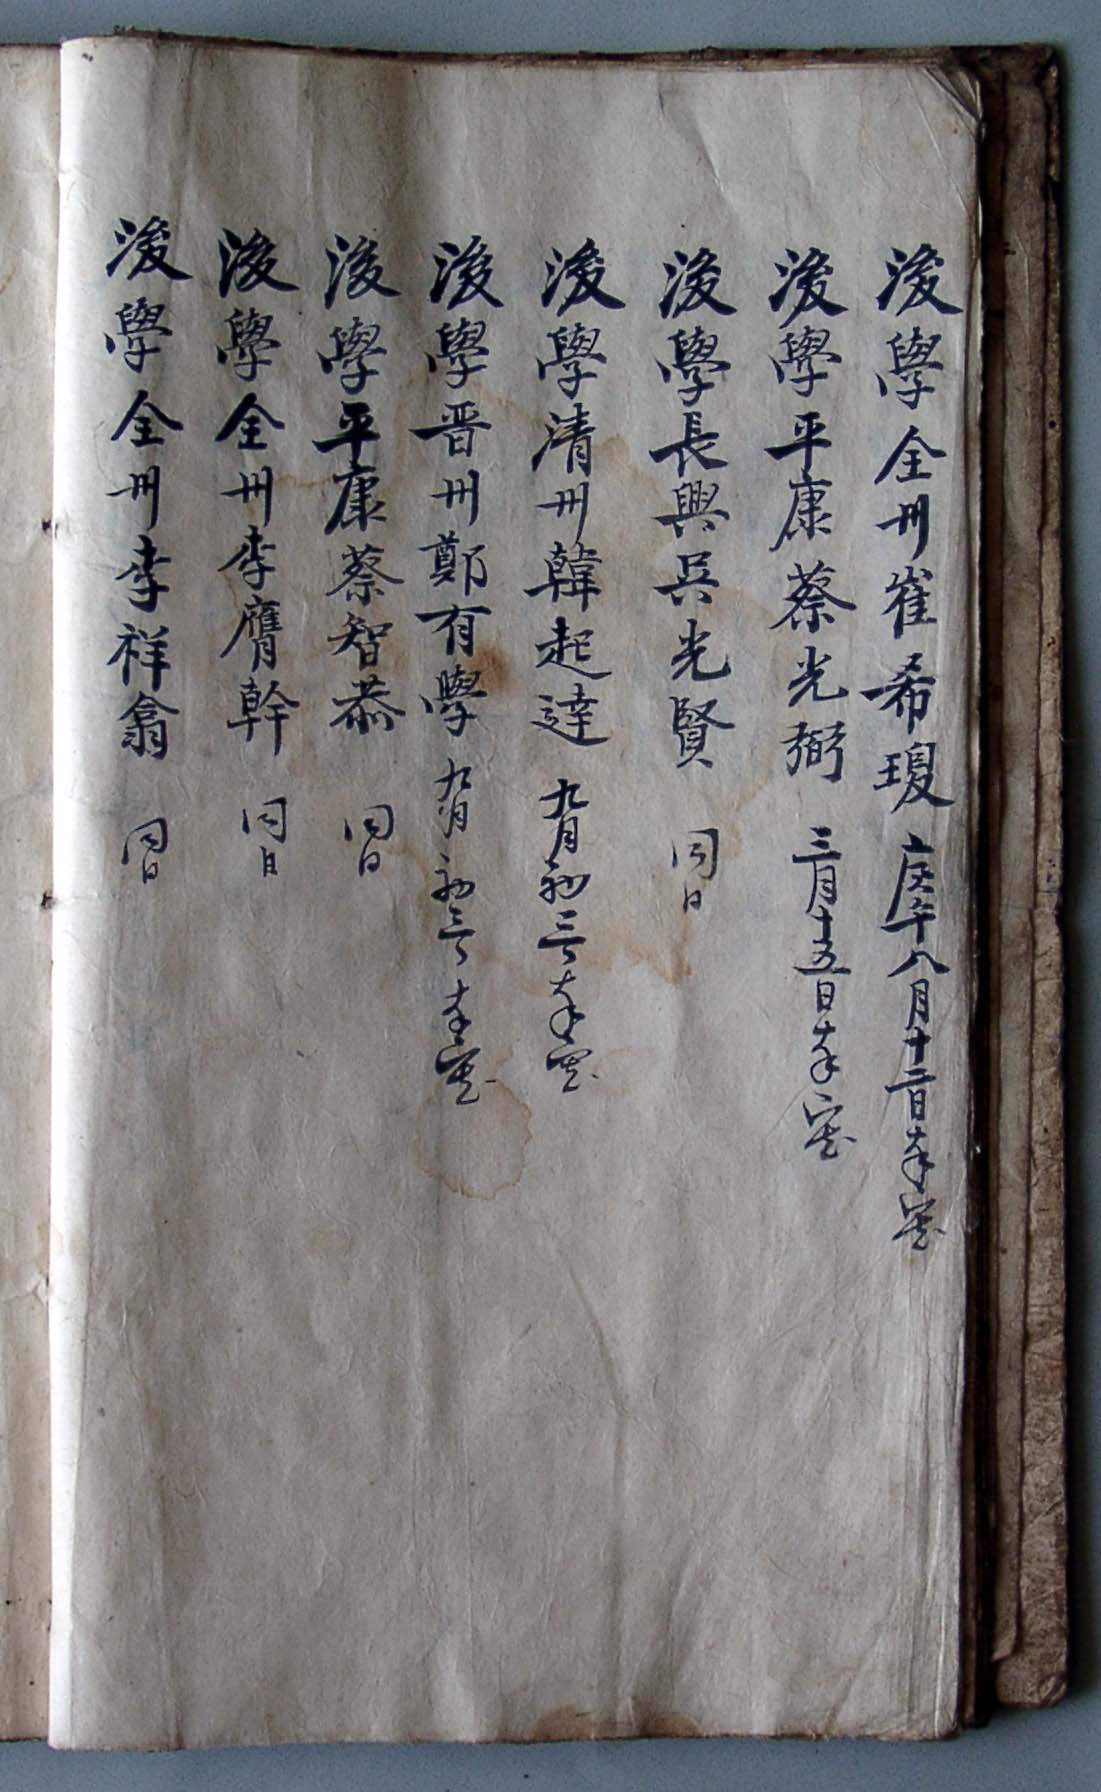 後學全州崔希瓊 庚午八月十二日奉審
後學平康蔡光弼 三月十五日奉審
後學長興吳光賢 同日
後學清州韓起達 九月初三日奉審
後學晋州鄭有學 九月初三日奉審
後學平康蔡智恭 同日
後學全州李膺幹 同日
後學全州李祥翕 同日